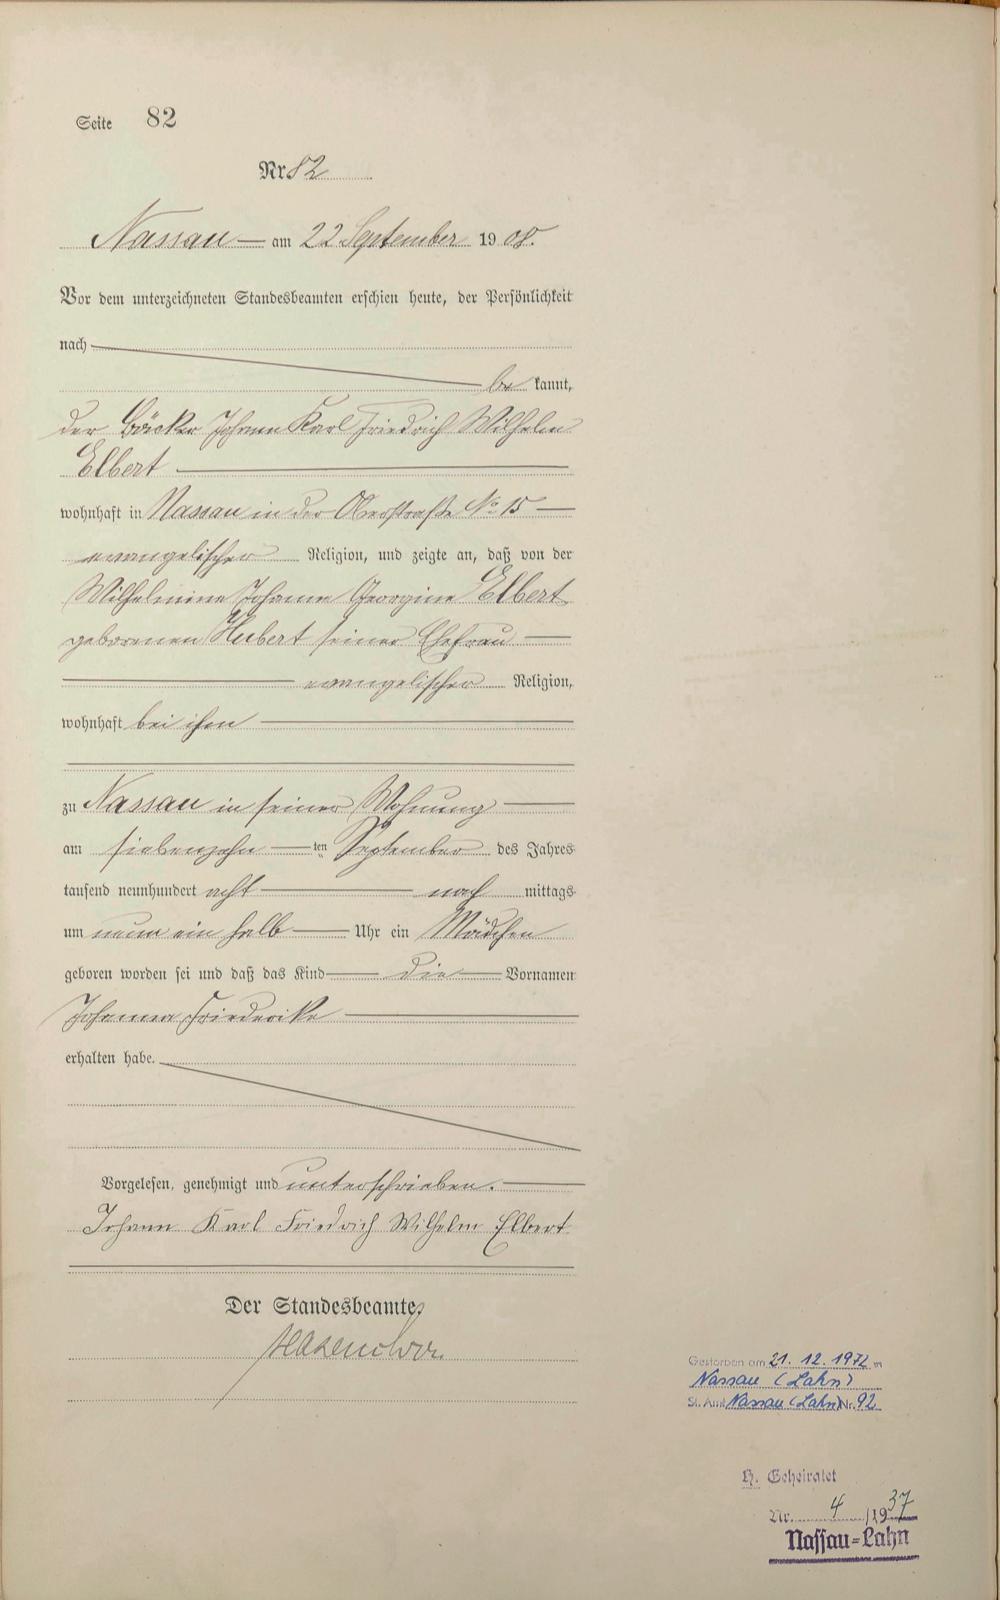 Seite 82
Nr. 82
Nassau am 22 September 1908.
Vor dem unterzeichneten Standesbeamten erschien heute, der Persönlichkeit
nach
be kannt,
der Bäcker Johann Karl Friedrich Wilhelm
Elbert
wohnhaft in Nassau in der Oberstraße No 15
evangelischer Religion, und zeigte an, daß von der
Wilhelmine Johanne Georgine Elbert
geborenen Hubert seiner Ehefrau
evangelischer Religion,
wohnhaft bei ihm
zu Nassau in seiner Wohnung
am siebenzehn ten September des Jahres
tausend neunhundert acht nach mittags
um neun ein halb Uhr ein Mädchen
geboren worden sei und daß das Kind die Vornamen
Johanna Friederike
erhalten habe.
Vorgelesen, genehmigt und unterschrieben.
Johann Karl Friedrich Wilhelm Elbert
Der Standesbeamte.
Gestorben am 21. 12. 1972 in
Nassau (Lahn)
St. Amt Nassau (Lahn) Nr. 92
H. Geheiratet
Nr. 4 /1937
Nassau-Lahn